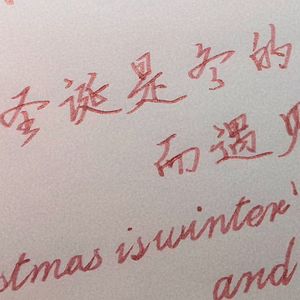 圣诞是冬的
而遇
stmas is winter'
and